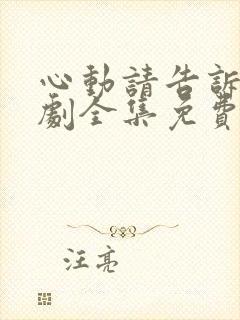 心動請告訴
劇全集免費
汪亮